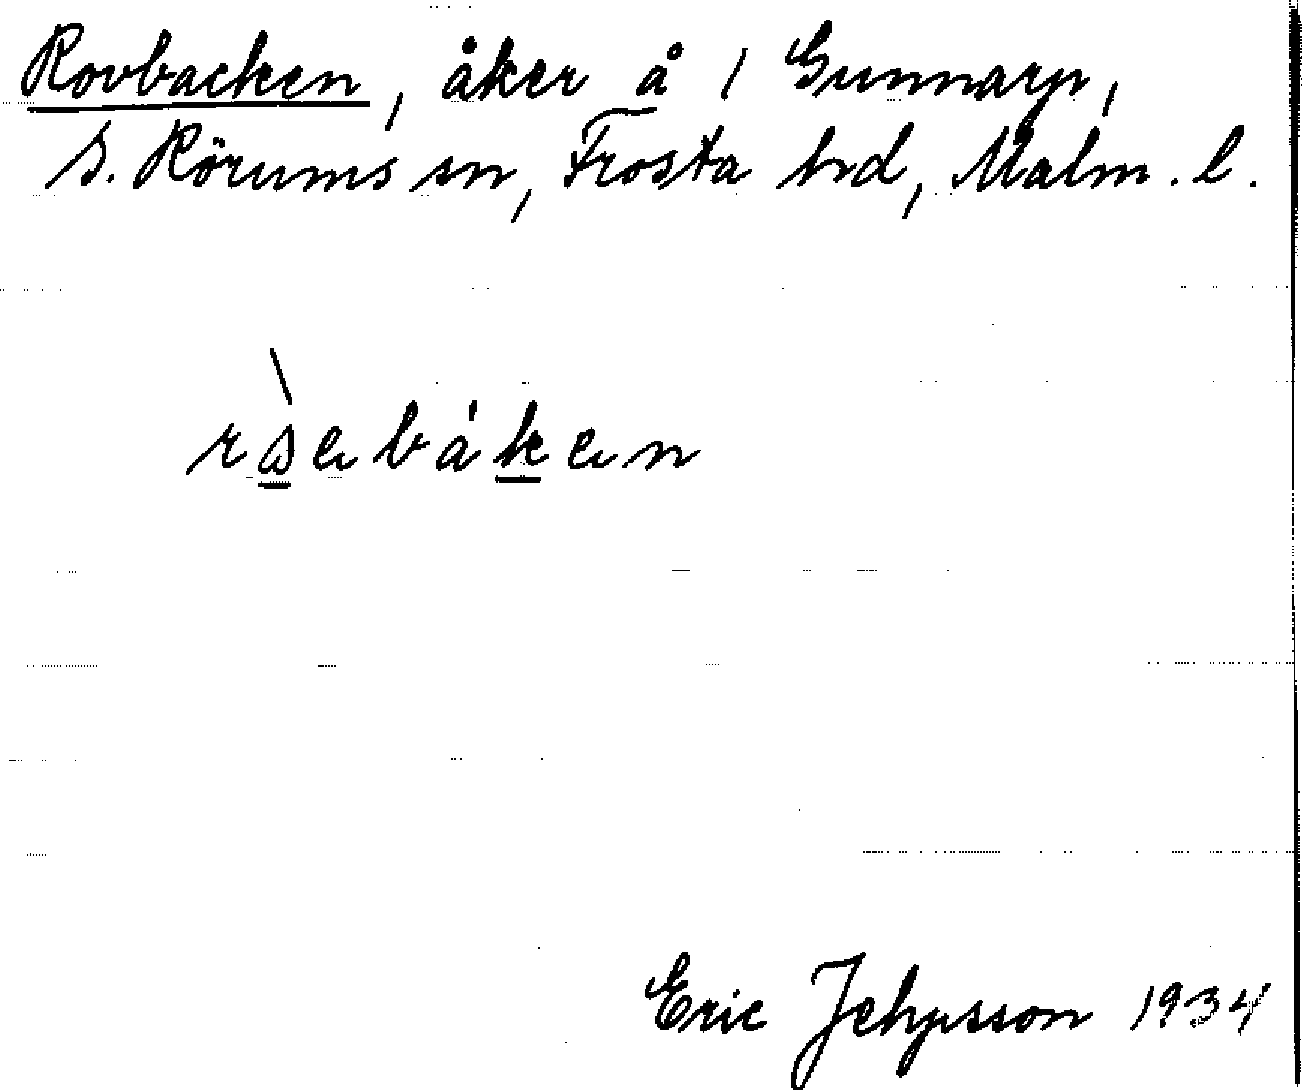 Rovbacken, åker å 1 Gunnarp,
S. Rörums sn, Frosta hd, Malm. l.
Eric Jehpsson 1934